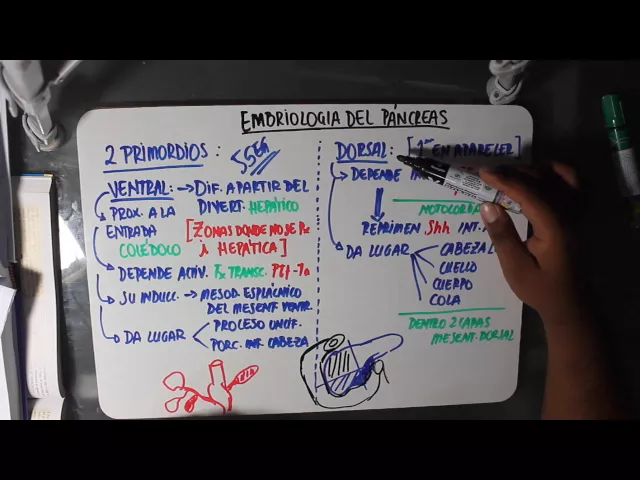 EMBRIOLOGIA DEL PÁNCREAS
2 PRIMORDIOS:
VENTRAL: → DIF. A PARTIR DEL
DIVERT. HEPÁTICO
PROX. A LA
ENTRADA
COLÉDOCO
[ZONAS DONDE NO SE
HEPÁTICA]
DEPENDE ACTIV. TRANSC. Ptf-1a
SU INDUCC. → MESOD. ESPLÁCNICO
DEL MESENT. VENTR.
DA LUGAR
PROCESO UNCIF.
PORC. INF. CABEZA
DORSAL: [1º EN APARECER]
DEPENDE
REPRIMEN Shh INT.
DA LUGAR
CABEZA
CUELLO
CUERPO
COLA
DENTRO 2 CAPAS
MESENT. DORSAL